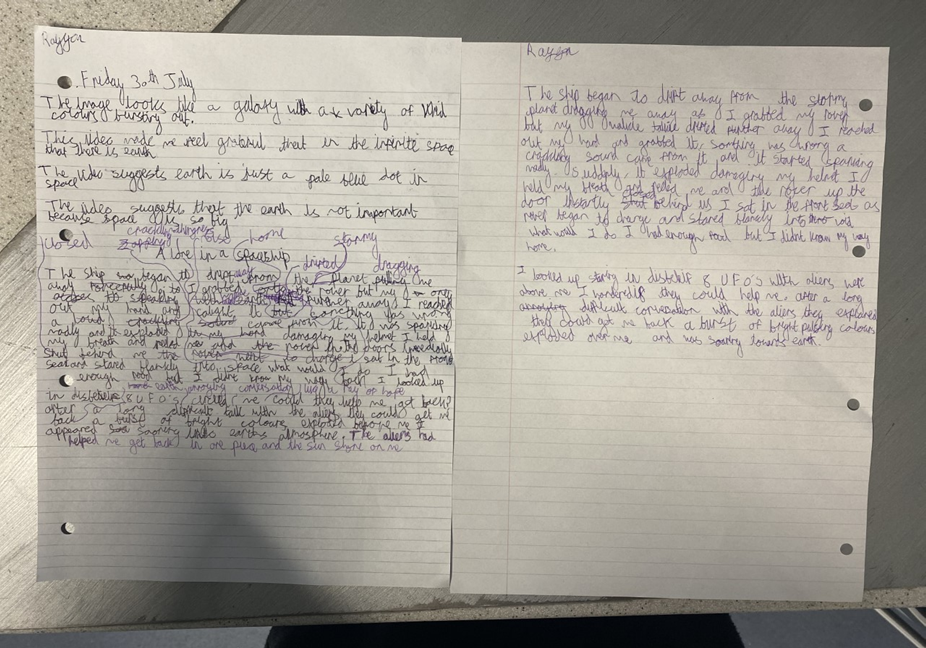 Rayyan
Friday 30th July
The image looks like a galaxy with a variety of vivid
colours bursting out.
This video made me feel grateful that in the infinite space
that there is earth
The video suggests earth is just a pale blue dot in
space
The video suggests that the earth is not important
because space is so big
closed
crackling
else
home
stormy
A lone in a spaceship
drifted
dragging
The ship began to drift from the planet pulling me
away
rover but my
further away I reached
out my hand and caught it but something was wrong
a loud crackling sound came from it. It was sparking
madly and it exploded in my hand damaging my helmet I held
my breath and
the rover
doors immediatly
shut behind me the rover
to charge I sat in the
seat and stared blankly into space what would I do I had
enough food but I didnt know my way back I looked up
in disbelief 8 UFO's circled me could they help me get back?
after a long difficult talk with the aliens they could get me
back a burst of bright colours exploded before me I
appeared soaring into earths atmosphere. The aliens had
helped me get back in one piece and the sun shone on me
Rayyan
The ship began to drift away from the stormy
planet dragging me away as I grabbed my rover
but my walkie talkie drifted further away I reached
out my hand and grabbed it, somthing was wrong a
crackling sound came from it and it started sparking
madly. Suddply, it exploded damaging my helmet I
held my breath and
me and the rover up the
door instantly closed behind us I sat in the front seat as
rover began to charge and stared blankly into
void
what would I do I had enough food but I didnt know my way
home.
I looked up staring in disbelief 8 UFO's with aliens were
above me I wonderd if they could help me after a long
difficult conversation with the aliens they explained
they could get me back a burst of bright pulsing colours
exploded over me and was soaring towards earth.